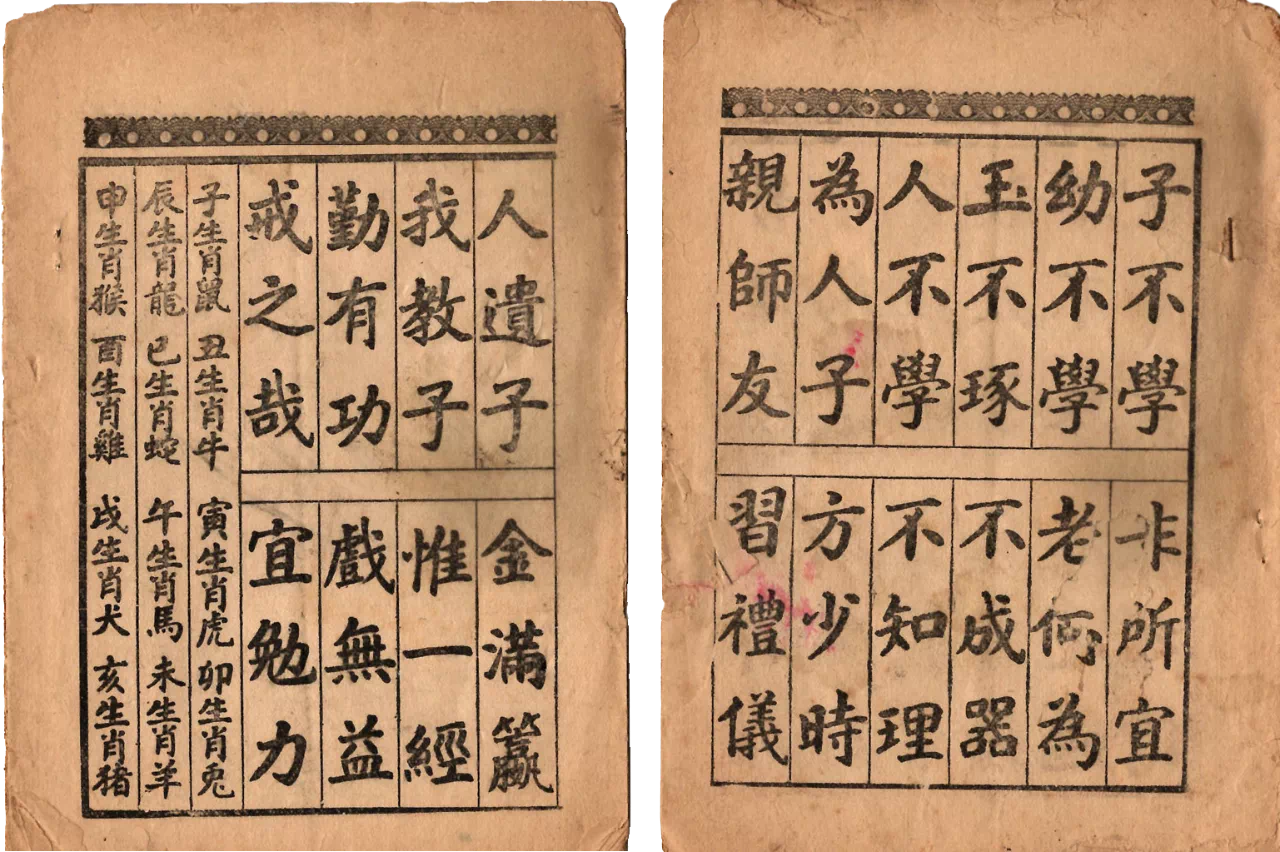 子不學 非所宜
幼不學 老何為
玉不琢 不成器
人不學 不知理
為人子 方少時
親師友 習禮儀
人遺子 金滿籯
我教子 惟一經
勤有功 戲無益
戒之哉 宜勉力
子生肖鼠 丑生肖牛 寅生肖虎 卯生肖兔
辰生肖龍 巳生肖蛇 午生肖馬 未生肖羊
申生肖猴 酉生肖雞 戌生肖犬 亥生肖猪